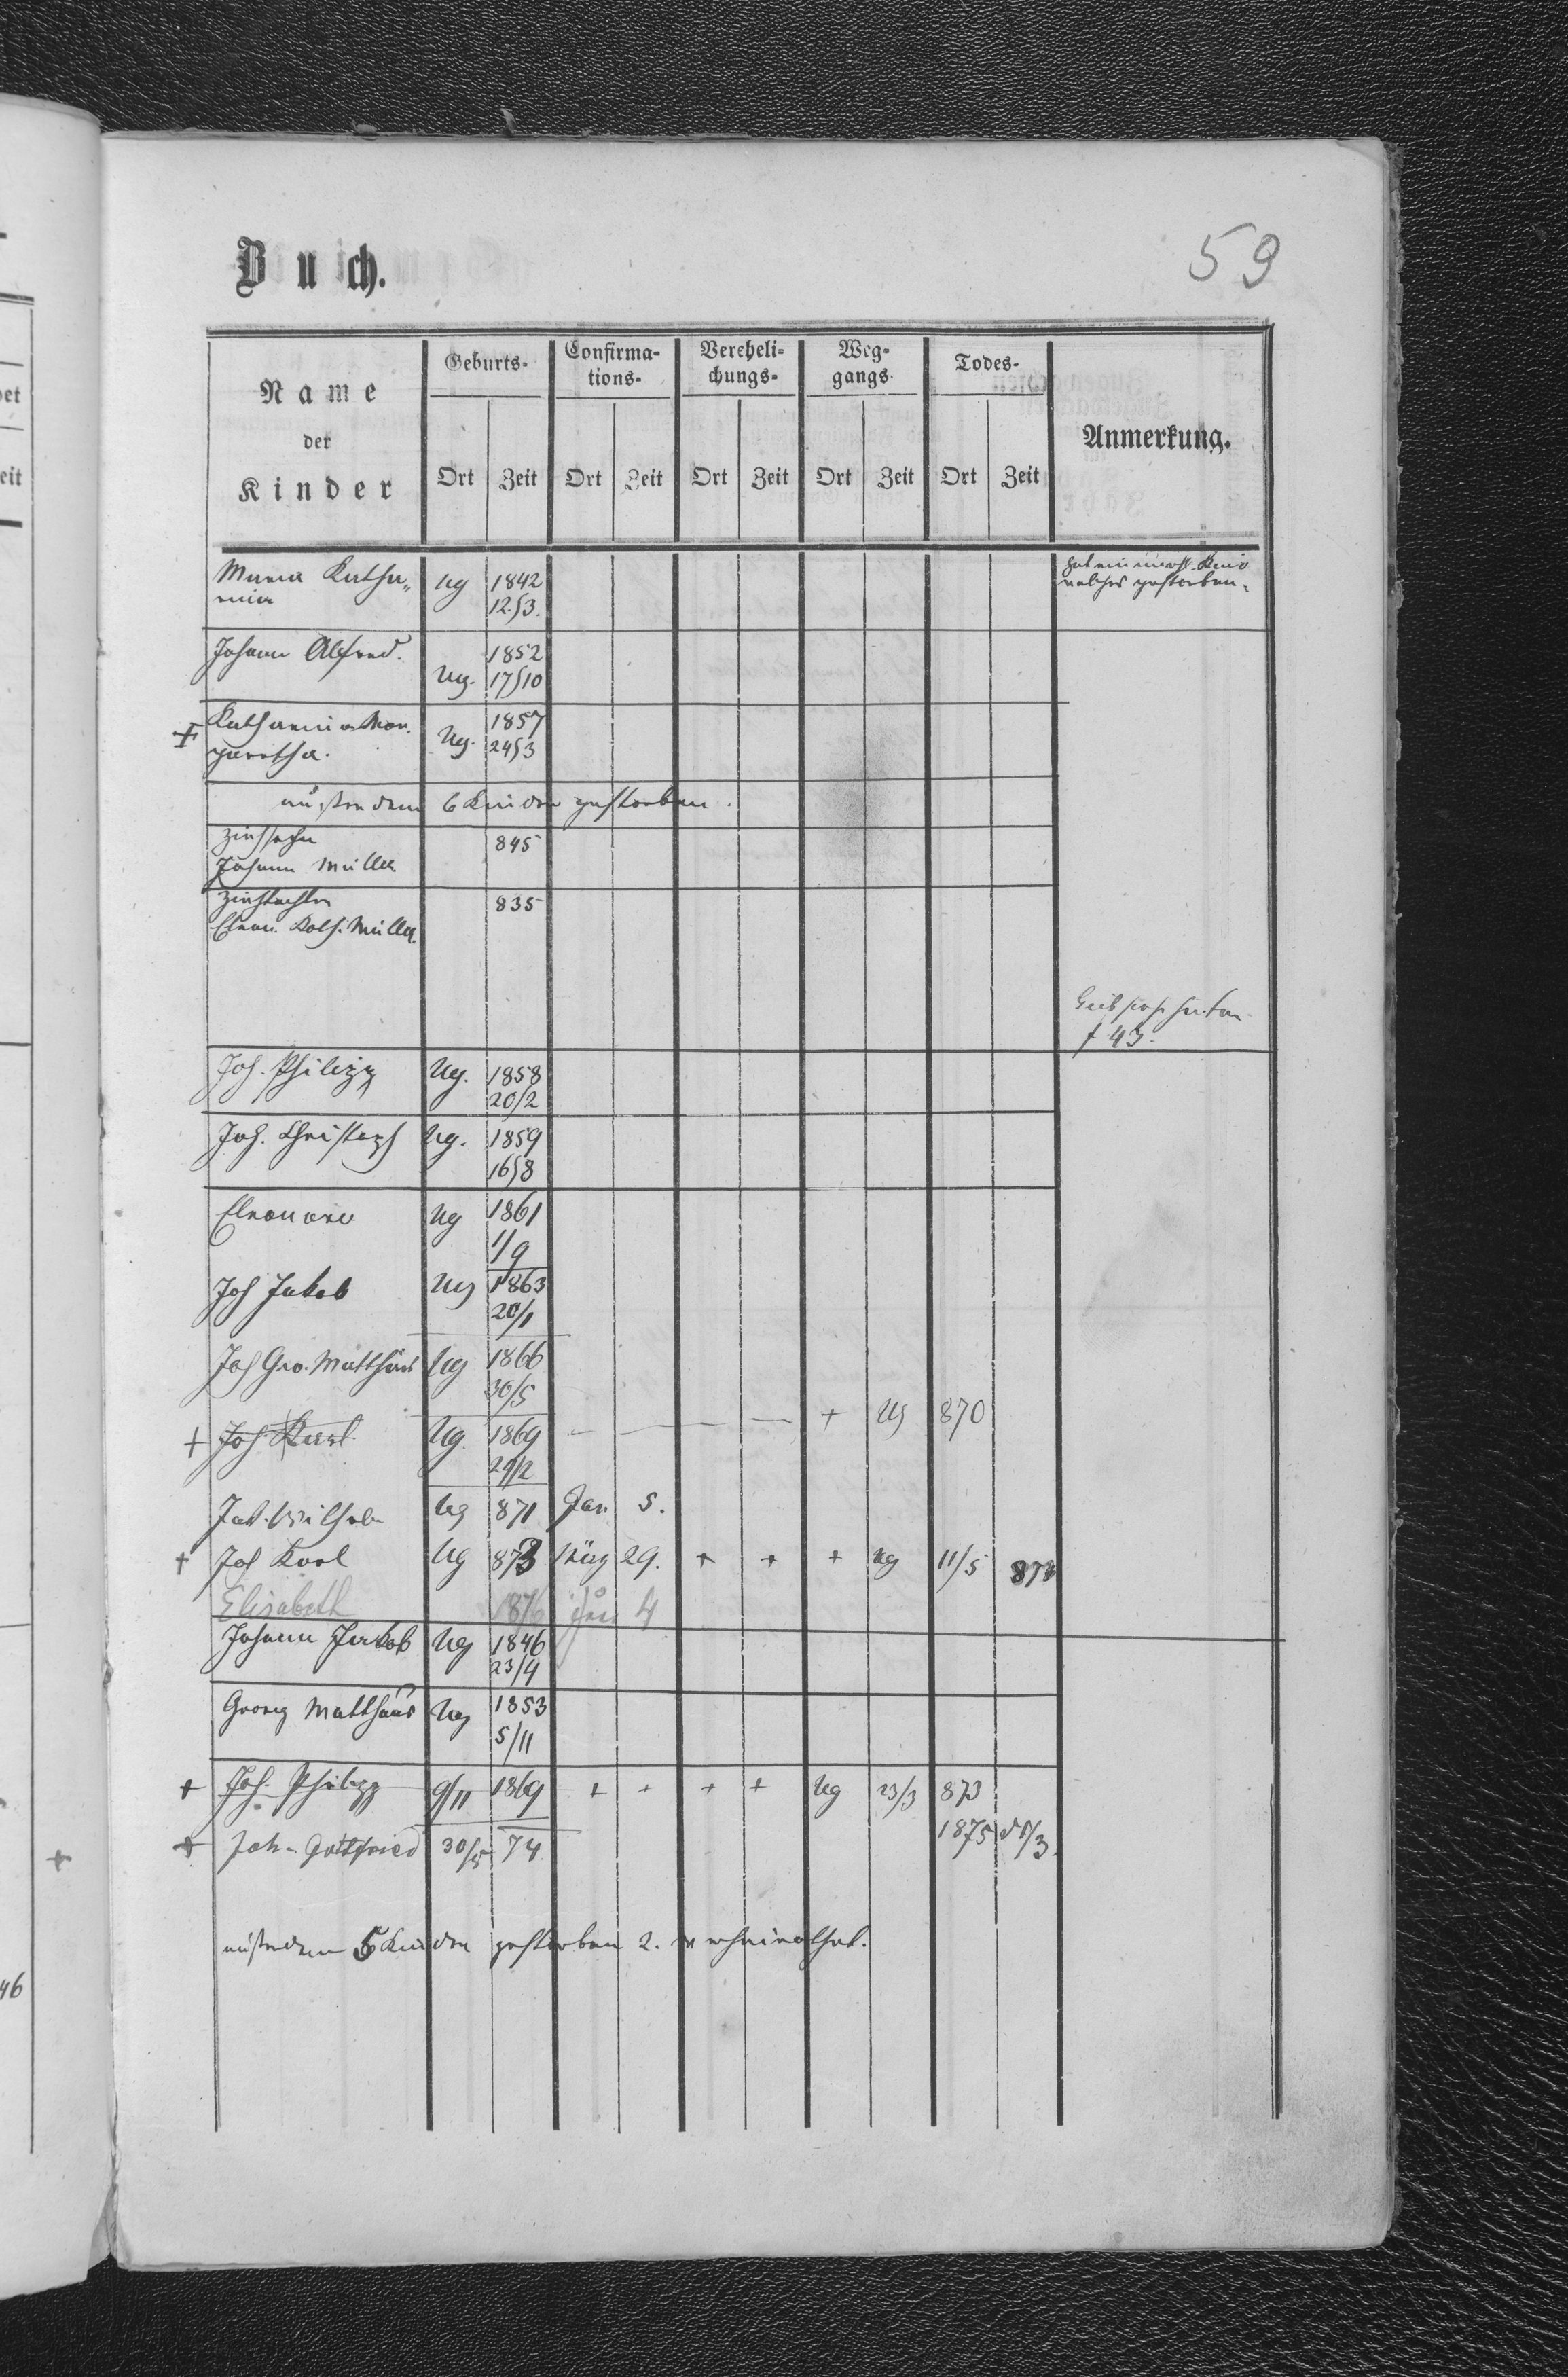 Buch.
59
Name der Kinder
Geburts- Confirma-tions- Vereheli-chungs- Weg-gangs Todes-
Anmerkung.
Ort Zeit Ort Zeit Ort Zeit Ort Zeit Ort Zeit
Maria Katha„ Ug 1842
rina 12/3.
welches gestorben.
Johann Alfred. 1852
Ug. 17/10
+ Katharina Mar. Ug. 1857
garetha. 24/3
außerdem 6 Kinder gestorben.
Ziehsohn 845
Johann Müller
Ziehtochter 835
Eleon. Kath. Müller.
f 43.
Joh. Philipp Ug. 1858
20/2
Joh. Christoph Ug. 1859
16/8
Eleonora Ug 1861
1/9
Joh Jakob Ug 1863
20/1
Joh Geo. Matthäus Ug 1866
30/5
+ Joh Karl Ug. 1869 — — — — + Ug 870
29/2
Wilhelm Ug 871 Jan 5.
+ Joh Karl Ug 873 März 29. + + + Ug 11/5 873
Elisabeth 1876 4
Johann Jakob Ug 1846
23/4
Georg Matthäus Ug 1853
5/11
+ Joh. Philipp 9/11 1869 + + + + Ug 23/3 873
+ Joh. Gottfried 30/5 74 1875
außerdem 5 Kinder gestorben 2. verheirathet.
et
eit
+
46